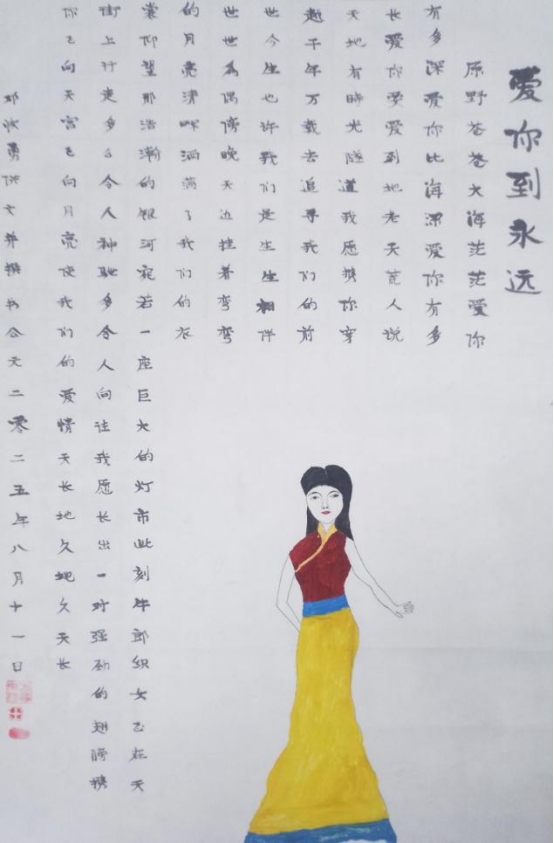 爱你到永远
原野苍苍大海茫茫爱你
有多深爱你比海深爱你有多
长爱你要爱到地老天荒人说
天地有时光隧道我愿携你穿
越千年万载去追寻我们的前
世今生也许我们是生生相伴
世世为偶傍晚天边挂着弯弯
的月亮清晖洒满了我们的衣
裳仰望那浩瀚的银河宛若一座巨大的灯市此刻牛郎织女正在天
街上行走多么令人神驰多令人向往我愿长出一对强劲的翅膀携
你飞向天宫飞向月亮使我们的爱情天长地久地久天长
邓勇作文并撰书公元二零二五年八月十一日